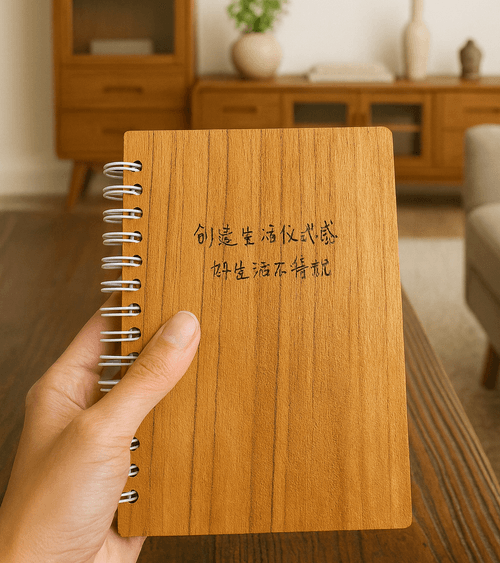 创造生活仪式感
好生活不将就